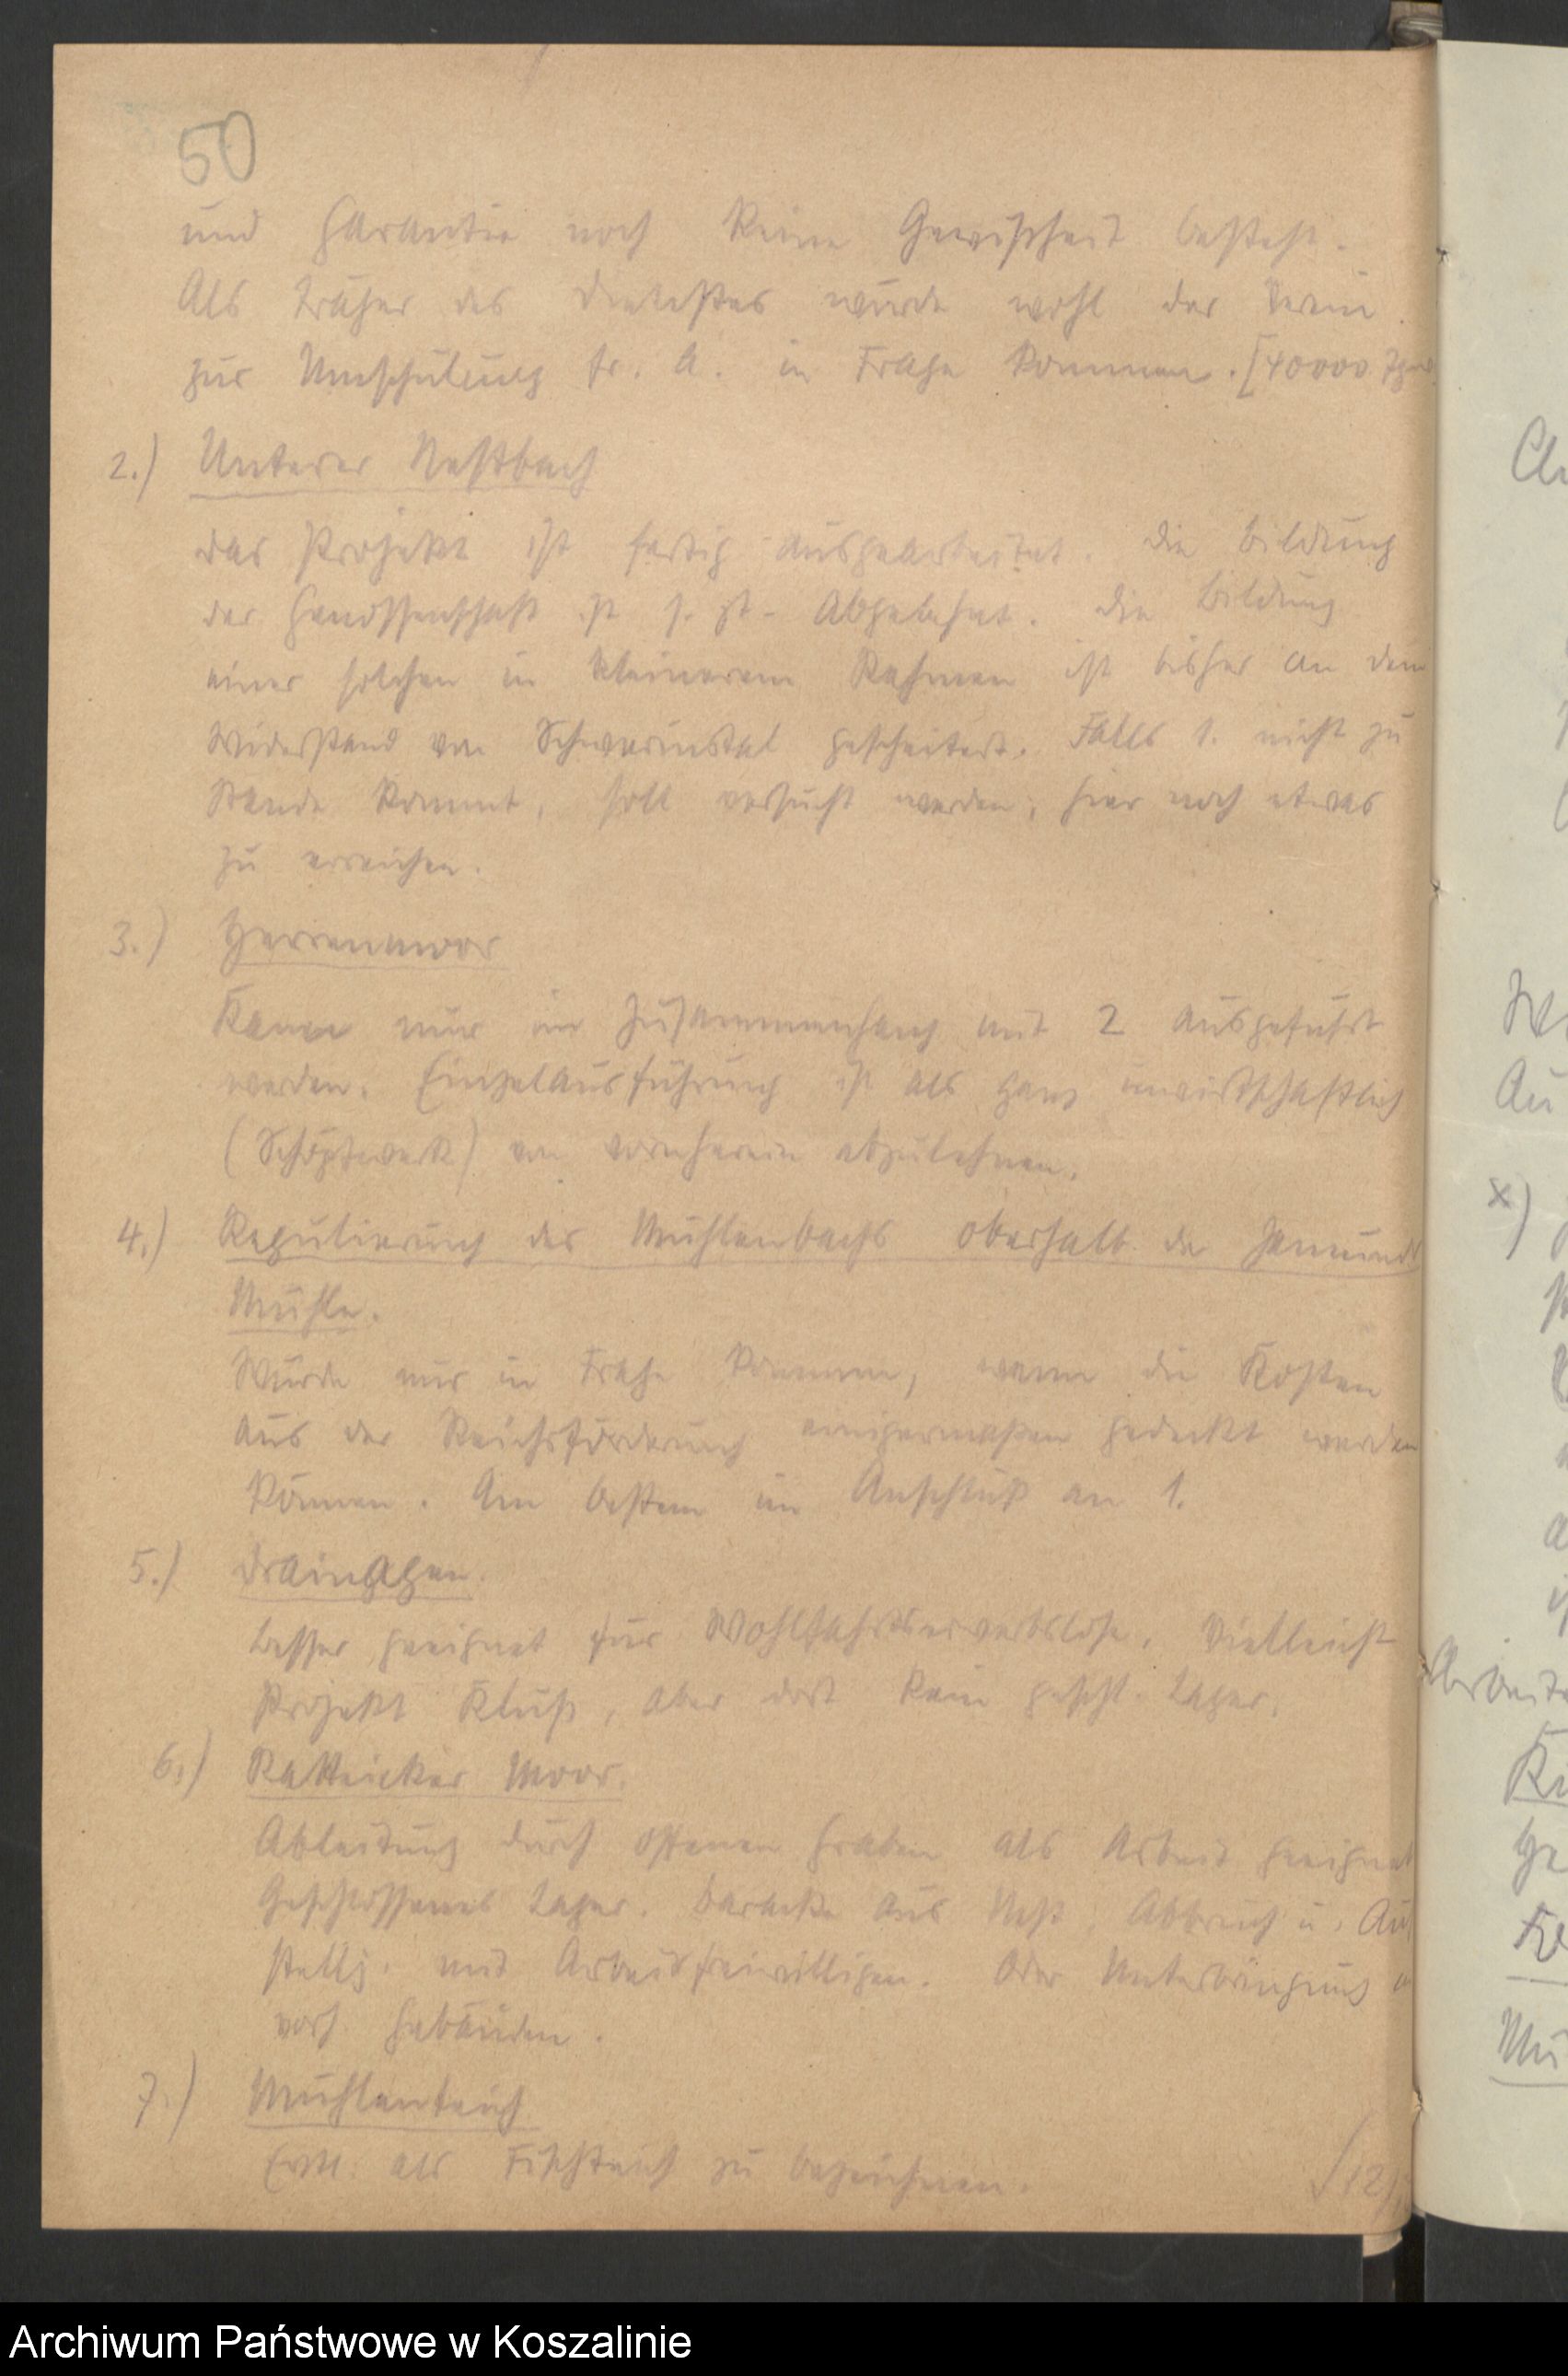 50
und Garantie noch keine Gewißheit besteht.
Als Träger des Dienstes würde wohl der Verein
zur Umschulung fr. A. in Frage kommen. [40000 Tgw.
2.) Unterer Nestbach
Das Projekt ist fertig ausgearbeitet. Die Bildung
der Genossenschaft ist s. Zt. abgelehnt. Die Bildung
einer solchen in kleinerem Rahmen ist bisher an dem
Widerstand von Schwerinstal gescheitert. Falls 1. nicht zu
Stande kommt, soll versucht werden, hier noch etwas
zu erreichen.
3.) Herrenmoor
Kann nur im Zusammenhang mit 2 ausgeführt
werden. Einzelausführung ist als ganz unwirtschaftlich
(Schöpfwerk) von vornherein abzulehnen.
4.) Regulierung des Mühlenbachs oberhalb der Jamunder
Mühle.
Würde nur in Frage kommen, wenn die Kosten
aus der Reichsförderung einigermaßen gedeckt werden
können. Am besten im Anschluß an 1.
5.) Drainagen.
Besser geeignet für Wohlfahrtserwerbslose. Vielleicht
Projekt Kluß, aber dort kein geschl. Lager.
6.) Ratteicker Moor.
Ableitung durch offenen Graben als Arbeit geeignet
Geschlossenes Lager. Baracke aus Nest. Abbruch u. Auf
stellg. mit Arbeitsfreiwilligen. Oder Unterbringung
vorh. Gebäuden.
7.) Mühlenteich
Evtl. als Fischteich zu bezeichnen.
Archiwum Państwowe w Koszalinie